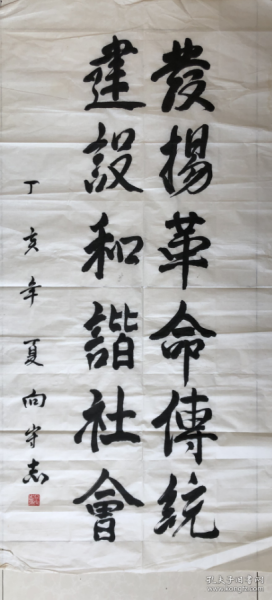 發揚革命傳統
建設和諧社會
丁亥年夏向守志
孔夫子旧书网